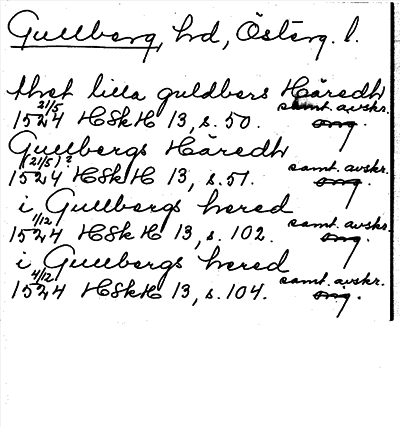 Gullberg, hd, Österg. l.
thet lilla guldbers Häredh
1524 21/5 HSkH 13, s. 50. samt. avskr. orig.
Gullbergs Häredh
1524 (21/5)? HSkH 13, s. 51. samt. avskr. orig.
i Gullbergs hered
1524 1/12 HSkH 13, s. 102. samt. avskr. orig.
i Gullbergs hered
1524 4/12 HSkH 13, s. 104. samt. avskr. orig.